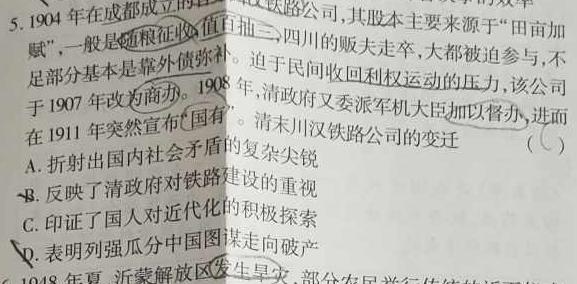 5. 1904 年在成都成立的铁路公司,其股本主要来源于“田亩加
赋”,一般是随粮征收、值百抽三,四川的贩夫走卒,大都被迫参与,不
足部分基本是靠外债弥补。迫于民间收回利权运动的压力,该公司
于 1907 年改为商办。1908 年,清政府又委派军机大臣加以督办,进而
在 1911 年突然宣布“国有”。清末川汉铁路公司的变迁 ( )
A. 折射出国内社会矛盾的复杂尖锐
B. 反映了清政府对铁路建设的重视
C. 印证了国人对近代化的积极探索
D. 表明列强瓜分中国图谋走向破产
1948 年夏,沂蒙解放区发生旱灾,部分农民举行传统的祈雨